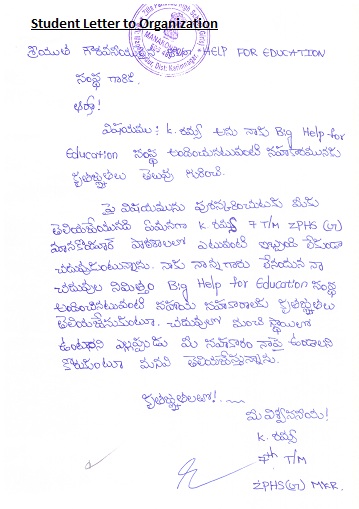 Student Letter to Organization
శ్రీయుత గౌరవనీయులైన HELP FOR EDUCATION
సంస్థ గారికి,
ఆర్యా!
విషయము: K. రమ్య అను నాకు Big Help for
Education సంస్థ అందించినటువంటి సహకారమునకు
కృతజ్ఞతలు తెలుపు గురించి.
పై విషయమును పురస్కరించుకుని మీకు
తెలియజేయునది ఏమనగా K. రమ్య 7 T/M ZPHS (Gr)
మానకొండూర్ పాఠశాలలో ఎటువంటి ఇబ్బంది లేకుండా
చదువుకుంటున్నాను. నాకు నాన్నగారు లేనందున నా
చదువుల నిమిత్తం Big Help for Education సంస్థ
అందించినటువంటి సహాయ సహకారాలకు కృతజ్ఞతలు
తెలియజేసుకుంటూ. చదువులో మంచి స్థాయిలో
ఉంటానని ఎల్లప్పుడు మీ సహకారం నాపై ఉండాలని
కోరుకుంటూ మనవి తెలియజేస్తున్నాను.
కృతజ్ఞతలతో!....
మీ విశ్వసనీయ!
K. రమ్య
7th T/M
ZPHS(Gr) MKR.